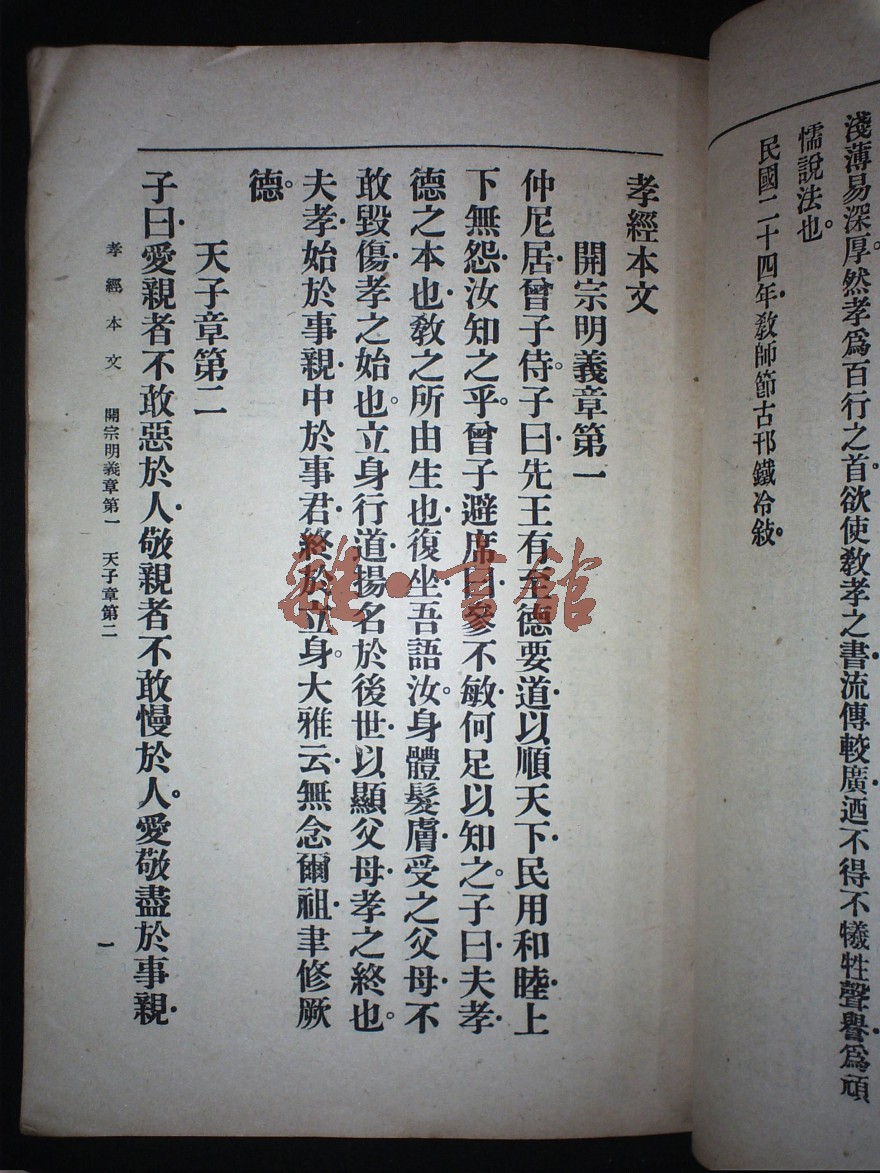 淺薄易深厚。然孝爲百行之首。欲使敎孝之書。流傳較廣。迺不得不犧牲聲譽。爲頑
懦說法也。
民國二十四年敎師節古邗鐵冷敍。
孝經本文
開宗明義章第一
仲尼居。曾子侍。子曰。先王有至德要道。以順天下。民用和睦。上
下無怨。汝知之乎。曾子避席曰。參不敏。何足以知之。子曰。夫孝。
德之本也。敎之所由生也。復坐。吾語汝。身體髮膚。受之父母。不
敢毀傷。孝之始也。立身行道。揚名於後世。以顯父母。孝之終也。
夫孝。始於事親。中於事君。終於立身。大雅云。無念爾祖。聿修厥
德。
天子章第二
子曰。愛親者不敢惡於人。敬親者不敢慢於人。愛敬盡於事親。
孝經本文 開宗明義章第一 天子章第二
一
雜·書館